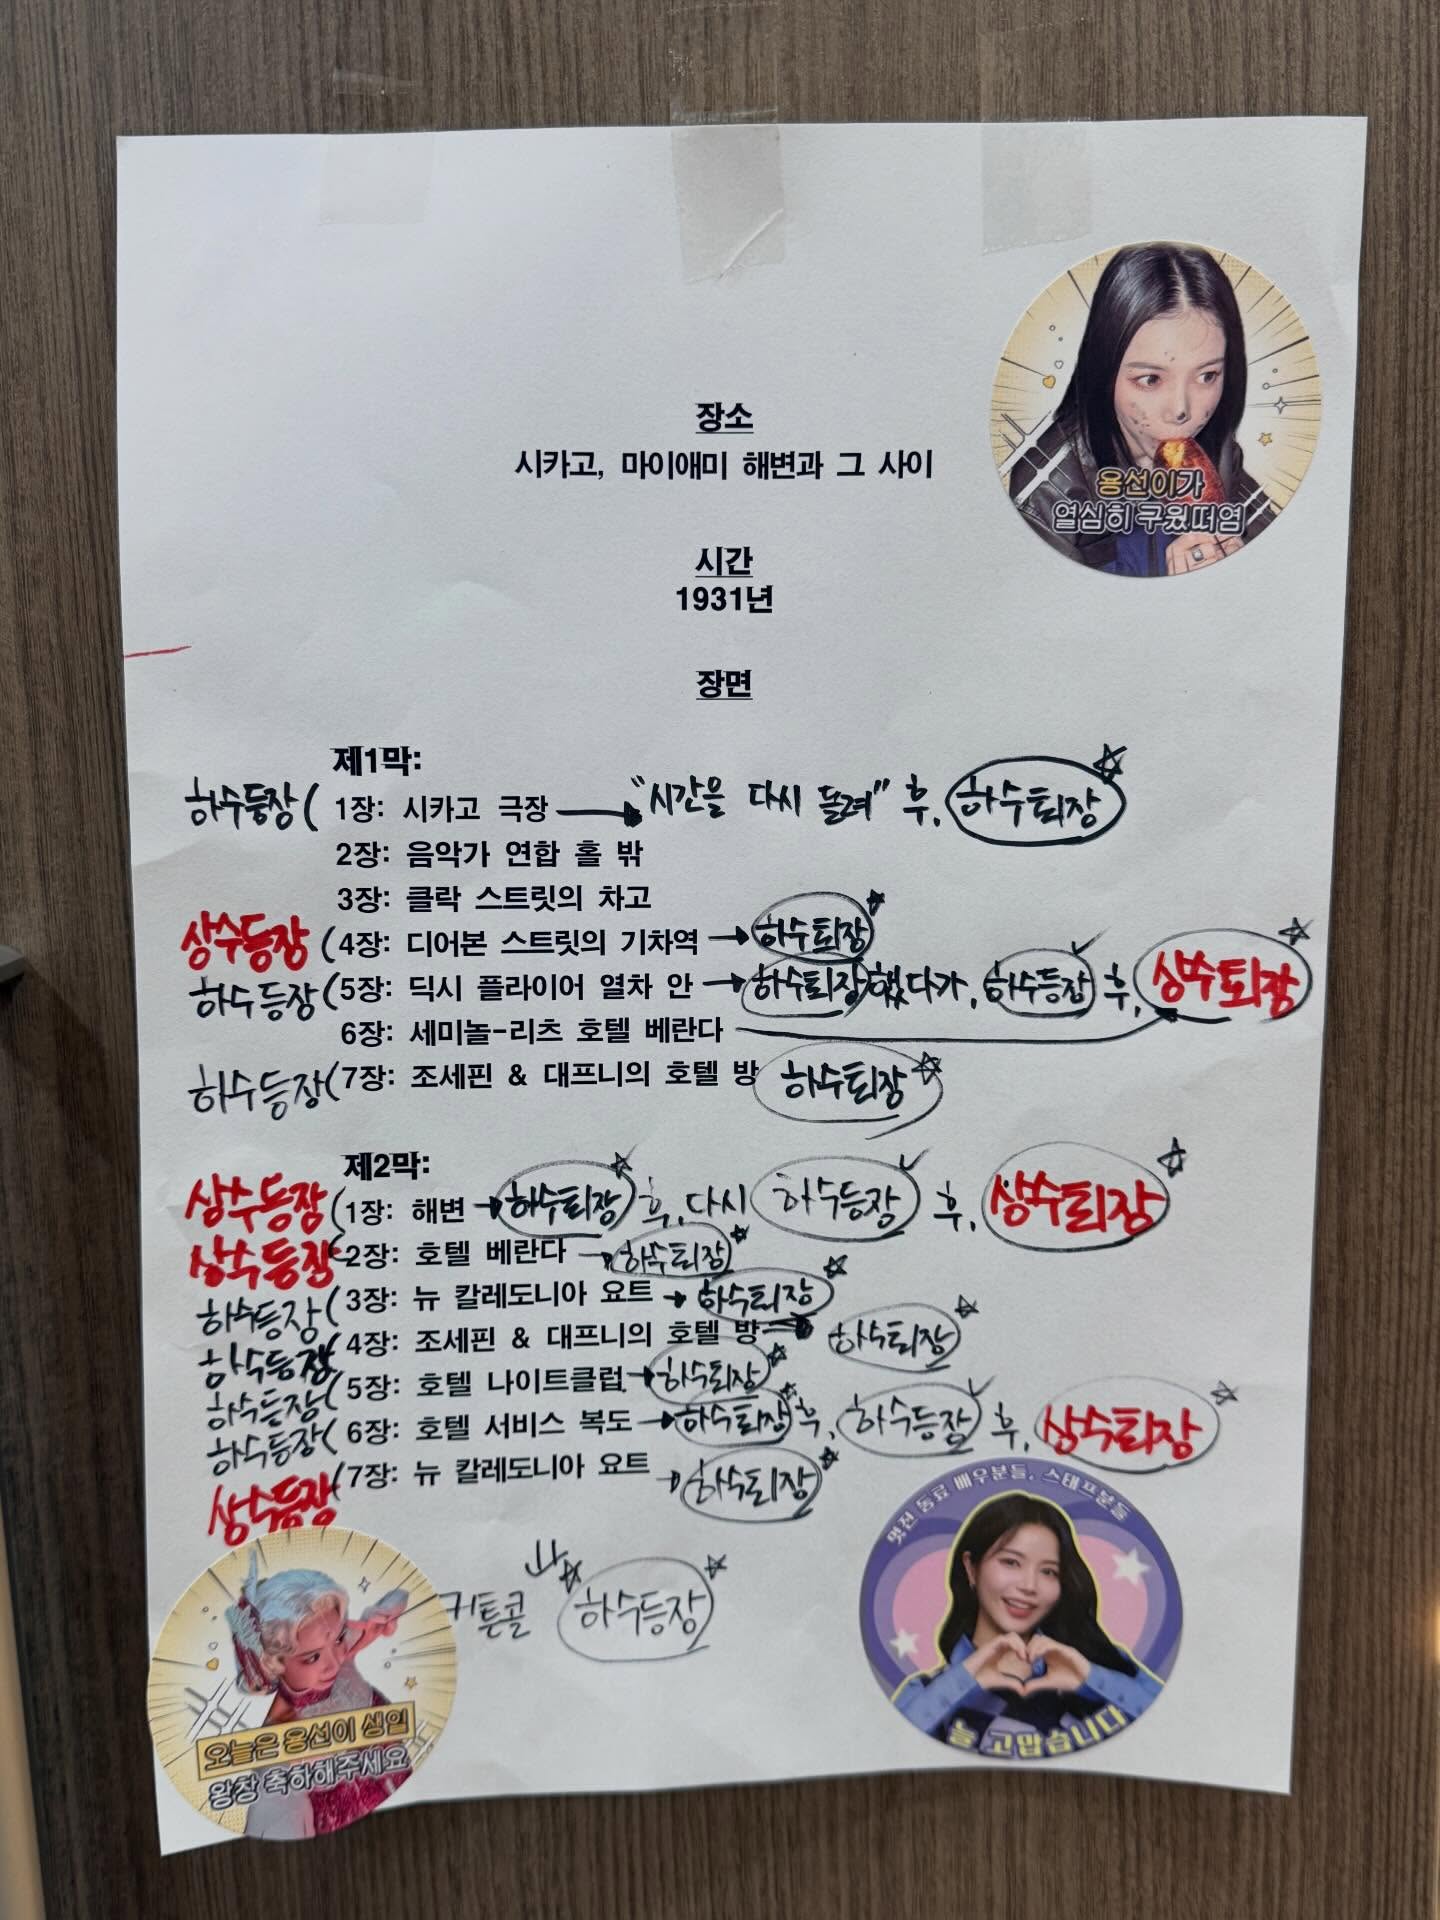 장소
시카고, 마이애미 해변과 그 사이
용선이가
열심히 구웠떠염
시간
1931년
장면
제1막:
하수등장( 1장: 시카고 극장 → "시간을 다시 돌려" 후, 하수퇴장 ☆
2장: 음악가 연합 홀 밖
3장: 클락 스트릿의 차고
상수등장 (4장: 디어본 스트릿의 기차역 → 하수퇴장 ★
하수등장 (5장: 딕시 플라이어 열차 안 → 하수퇴장했다가, 하수등장 후, 상수퇴장 ☆
6장: 세미놀-리츠 호텔 베란다
하수등장(7장: 조세핀 & 대프니의 호텔 방 하수퇴장 ☆
제2막:
상수등장 (1장: 해변 → 하수퇴장 ☆ 후, 다시 하수등장 후, 상수퇴장 ☆
상수등장 (2장: 호텔 베란다 → 하수퇴장 ★
하수등장 (3장: 뉴 칼레도니아 요트 → 하수퇴장 ☆
하수등장 (4장: 조세핀 & 대프니의 호텔 방 → 하수퇴장 ☆
하수등장 (5장: 호텔 나이트클럽 → 하수퇴장 ★
하수등장 (6장: 호텔 서비스 복도 → 하수퇴장 ★ 후, 하수등장 후, 상수퇴장 ☆
상수등장 (7장: 뉴 칼레도니아 요트 → 하수퇴장 ★
커튼콜 하수등장 ☆
멋진 동료 배우분들, 스태프분들
늘 고맙습니다
오늘은 용선이 생일
왕창 축하해주세요